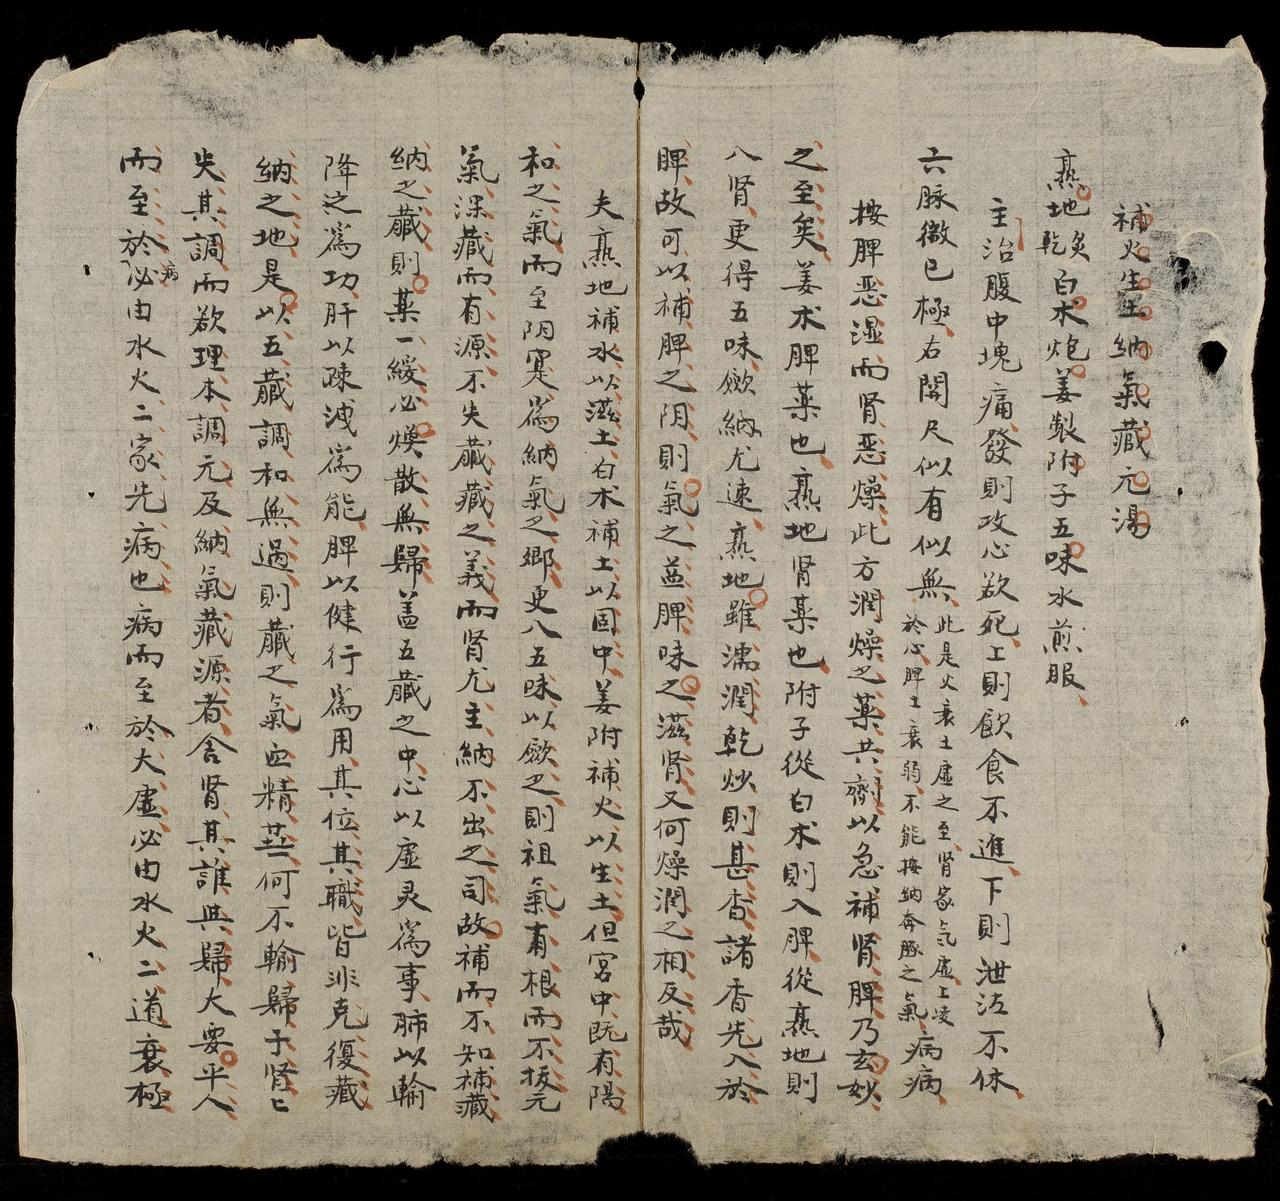 補火生土納氣藏元湯
熟地炙乾白朮炮姜製附子五味水煎服
主治腹中塊痛發則攻心欲死上則飲食不進下則泄泻不休
六脉微已極右關尺似有似無此是火衰土虛之至肾家气虛上凌於心脾土衰弱不能按納奔豚之氣病病
按脾恶湿而肾恶燥此方潤燥之薬共劑以急補肾脾乃玄妙
之至矣姜朮脾薬也熟地肾薬也附子從白朮則入脾從熟地則
入肾更得五味歛納尤速熟地雖濡潤乾炒則甚香諸香先入於
脾故可以補脾之阴則氣之益脾味之滋肾又何燥潤之相反哉
夫熟地補水以滋土白朮補土以固中姜附補火以生土但宮中既有陽
和之氣而至阴寔為納氣之郷更入五味以歛之則祖氣有根而不拔元
氣深藏而有源不失藏藏之義而肾尤主納不出之司故補而不知補藏
納之藏則薬一緩必煥散無歸盖五藏之中心以虛灵為事肺以輸
降之為功肝以疎洩為能脾以健行為用其位其職皆非克復藏
納之地是以五藏調和無過則藏之氣血精 何不輸歸于肾匕
失其調而欲理本調元及納氣藏源者舍肾其誰與歸大要平人
而至於病必由水火二家先病也病而至於大虛必由水火二道衰極